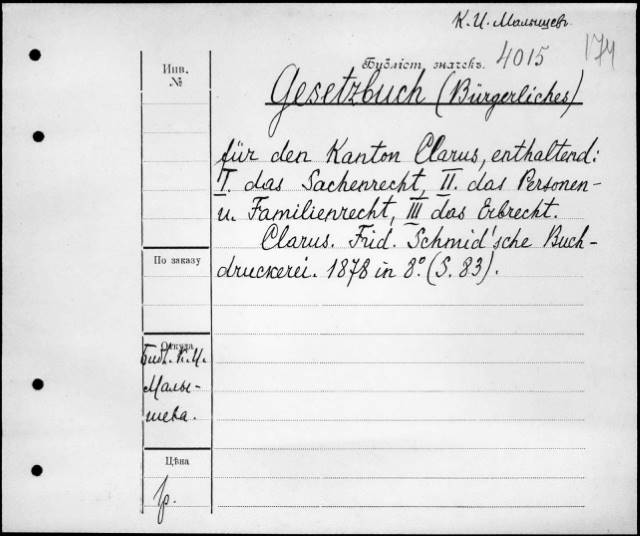 К. И. Малышевъ
174
Библіот. значекъ. 4015
Gesetzbuch (Bürgerliches)
für den Kanton Clarus, enthaltend:
I. das Sachenrecht, II. das Personen-
u. Familienrecht, III das Erbrecht.
Clarus. Frid. Schmid'sche Buch-
druckerei. 1878 in 8.° (S. 83).
Инв.
№
По заказу
Откуда
Библ. К. И.
Малы-
шева.
Цѣна